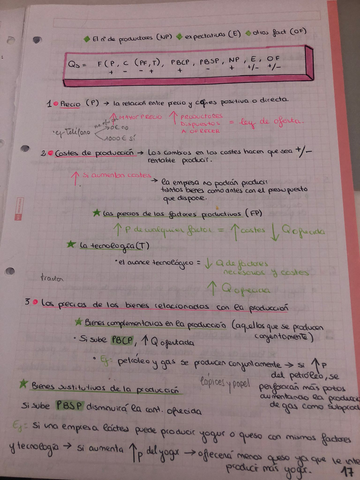 ◆ El nº de productores (NP) ◆ expectativas (E) ◆ otros fact (OF)
Qs = F (P, C (PF, T), PBCP, PBSP, NP, E, OF
+ - - + + - + +/- +/-
1. Precio (P) → la relación entre precio y es positiva o directa.
↑ PRECIO ↑ PRODUCTORES DISPUESTOS A OFRECER = Ley de oferta.
• ej: teléfono
2. Costes de producción → los cambios en los costes hacen que sea +/-
rentable producir.
↑ Si aumentan costes
→ la empresa no podrán producir
tantos bienes como antes con el presupuesto
que dispone.
★ Los precios de los factores productivos (FP)
↑ P de cualquier factor = ↑ costes ↓ Q ofrecida
★ La tecnología (T)
• el avance tecnológico = ↓ Q de factores
necesarios y costes.
↑ Q oferta
3. Los precios de los bienes relacionados con la producción
★ Bienes complementarios en la producción (aquellos que se producen
conjuntamente)
• Si sube PBCP, ↑ Q ofertada
• Ej: petróleo y gas se producen conjuntamente → si ↑ P
del petróleo, se
lápices y papel
perforarán más pozos
aumentando la producción
de gas como subproducto
★ Bienes sustitutivos de la producción
Si sube PBSP disminuirá la cant. ofrecida
Ej: Si una empresa láctea puede producir yogur o queso con mismos factores
y tecnología → si aumenta ↑ P del yogur → ofrecerá menos queso ya que le
producir más yogur.
17